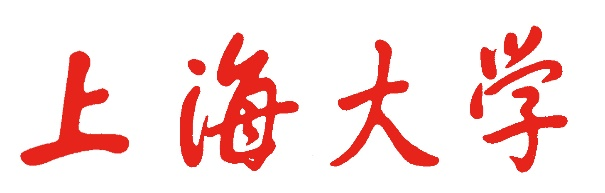 上海大学